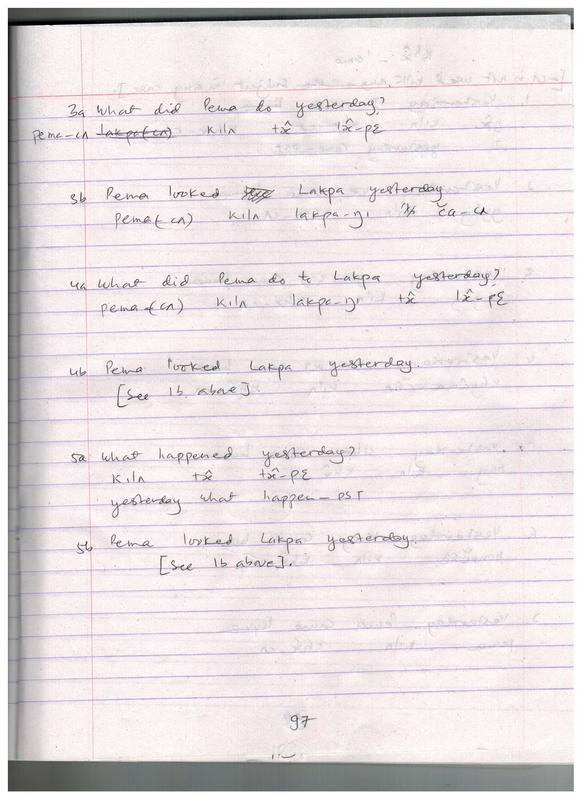 3a What did Pema do yesterday?
pema-cʌ lakpa(cʌ) kilʌ tx̂ lx̂-pɛ
3b Pema looked Lakpa yesterday
pema(-cʌ) kilʌ lakpa-ŋi ča-cʌ
4a What did Pema do to Lakpa yesterday?
pema-(cʌ) kilʌ lakpa-ŋi tx̂ lx̂-pɛ
4b Pema looked Lakpa yesterday.
[See 1b above].
5a What happened yesterday?
kilʌ tx̂ tx̂-pɛ
yesterday what happen-PST
5b Pema looked Lakpa yesterday.
[See 1b above].
97